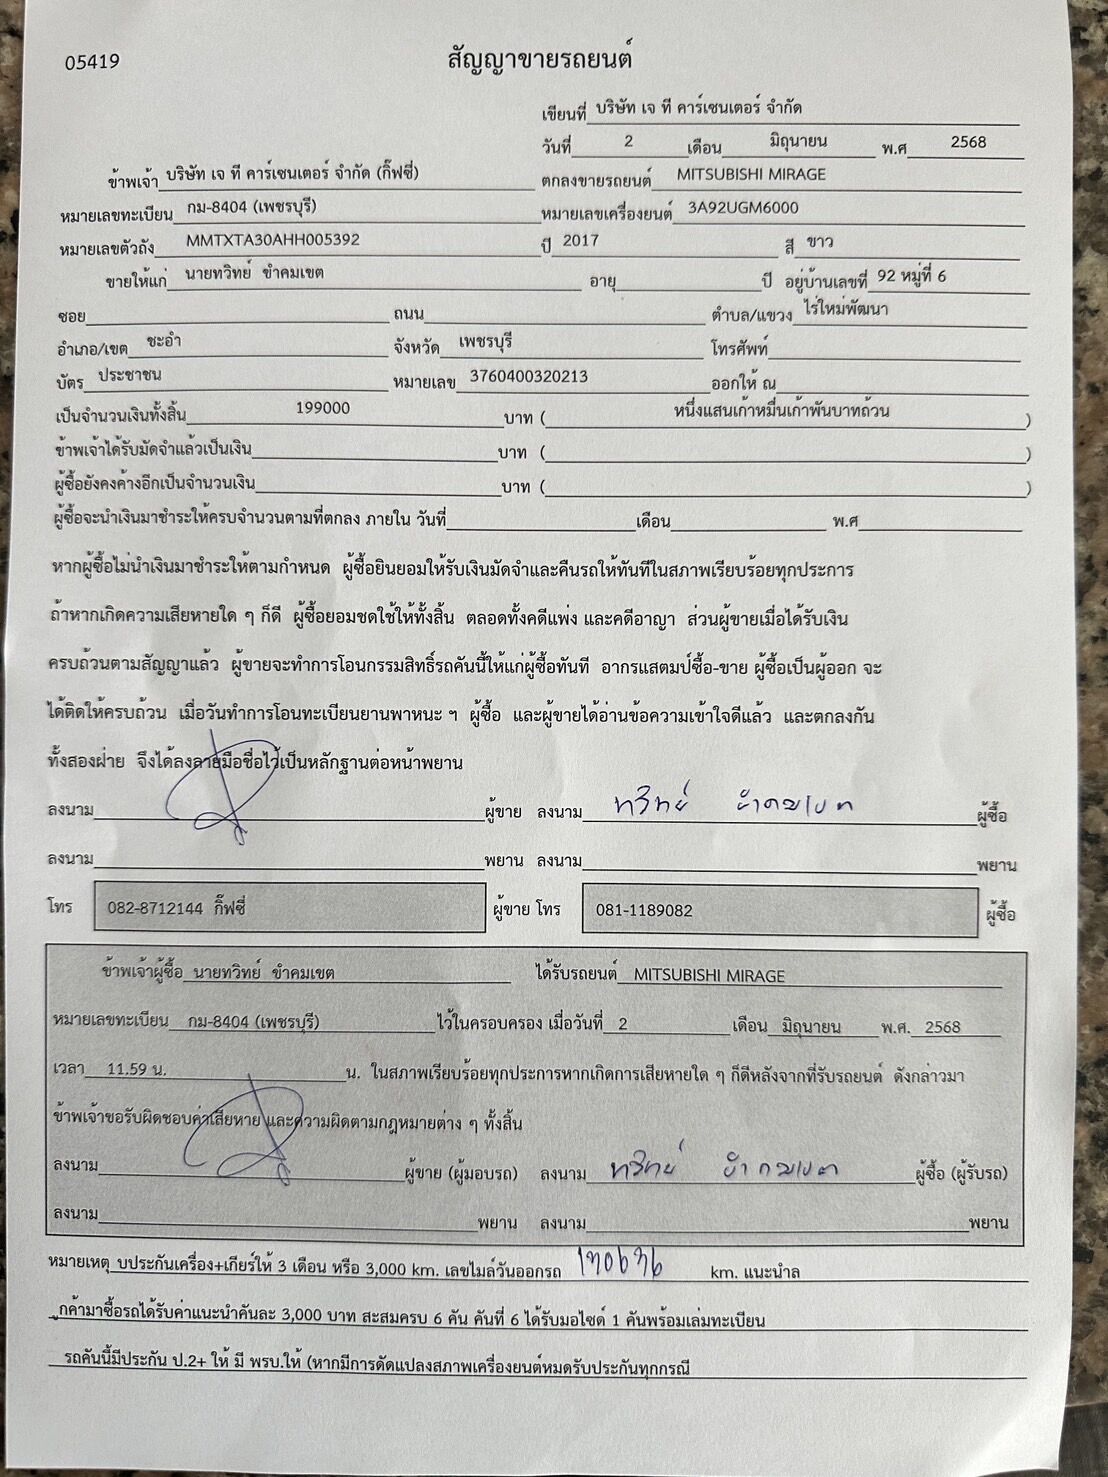 05419
สัญญาขายรถยนต์
เขียนที่ บริษัท เจ ที คาร์เซนเตอร์ จำกัด
วันที่ 2 เดือน มิถุนายน พ.ศ 2568
ข้าพเจ้า บริษัท เจ ที คาร์เซนเตอร์ จำกัด (กิ๊ฟซี่) ตกลงขายรถยนต์ MITSUBISHI MIRAGE
หมายเลขทะเบียน กม-8404 (เพชรบุรี) หมายเลขเครื่องยนต์ 3A92UGM6000
หมายเลขตัวถัง MMTXTA30AHH005392 ปี 2017 สี ขาว
ขายให้แก่ นายทวิทย์ ขำคมเขต อายุ ปี อยู่บ้านเลขที่ 92 หมู่ที่ 6
ซอย ถนน ตำบล/แขวง ไร่ใหม่พัฒนา
อำเภอ/เขต ชะอำ จังหวัด เพชรบุรี โทรศัพท์
บัตร ประชาชน หมายเลข 3760400320213 ออกให้ ณ
เป็นจำนวนเงินทั้งสิ้น 199000 บาท ( หนึ่งแสนเก้าหมื่นเก้าพันบาทถ้วน )
ข้าพเจ้าได้รับมัดจำแล้วเป็นเงิน บาท ( )
ผู้ซื้อยังคงค้างอีกเป็นจำนวนเงิน บาท ( )
ผู้ซื้อจะนำเงินมาชำระให้ครบจำนวนตามที่ตกลง ภายใน วันที่ เดือน พ.ศ
หากผู้ซื้อไม่นำเงินมาชำระให้ตามกำหนด ผู้ซื้อยินยอมให้รับเงินมัดจำและคืนรถให้ทันทีในสภาพเรียบร้อยทุกประการ
ถ้าหากเกิดความเสียหายใด ๆ ก็ดี ผู้ซื้อยอมชดใช้ให้ทั้งสิ้น ตลอดทั้งคดีแพ่ง และคดีอาญา ส่วนผู้ขายเมื่อได้รับเงิน
ครบถ้วนตามสัญญาแล้ว ผู้ขายจะทำการโอนกรรมสิทธิ์รถคันนี้ให้แก่ผู้ซื้อทันที อากรแสตมป์ซื้อ-ขาย ผู้ซื้อเป็นผู้ออก จะ
ได้ติดให้ครบถ้วน เมื่อวันทำการโอนทะเบียนยานพาหนะ ฯ ผู้ซื้อ และผู้ขายได้อ่านข้อความเข้าใจดีแล้ว และตกลงกัน
ทั้งสองฝ่าย จึงได้ลงลายมือชื่อไว้เป็นหลักฐานต่อหน้าพยาน
ลงนาม ผู้ขาย ลงนาม ทวิทย์ ขำคมเขต ผู้ซื้อ
ลงนาม พยาน ลงนาม พยาน
โทร 082-8712144 กิ๊ฟซี่ ผู้ขาย โทร 081-1189082 ผู้ซื้อ
ข้าพเจ้าผู้ซื้อ นายทวิทย์ ขำคมเขต ได้รับรถยนต์ MITSUBISHI MIRAGE
หมายเลขทะเบียน กม-8404 (เพชรบุรี) ไว้ในครอบครอง เมื่อวันที่ 2 เดือน มิถุนายน พ.ศ. 2568
เวลา 11.59 น. น. ในสภาพเรียบร้อยทุกประการหากเกิดการเสียหายใด ๆ ก็ดีหลังจากที่รับรถยนต์ ดังกล่าวมา
ข้าพเจ้าขอรับผิดชอบค่าเสียหาย และความผิดตามกฎหมายต่าง ๆ ทั้งสิ้น
ลงนาม ผู้ขาย (ผู้มอบรถ) ลงนาม ทวิทย์ ขำคมเขต ผู้ซื้อ (ผู้รับรถ)
ลงนาม พยาน ลงนาม พยาน
หมายเหตุ บประกันเครื่อง+เกียร์ให้ 3 เดือน หรือ 3,000 km. เลขไมล์วันออกรถ km. แนะนำล
ูกค้ามาซื้อรถได้รับค่าแนะนำคันละ 3,000 บาท สะสมครบ 6 คัน คันที่ 6 ได้รับมอไซต์ 1 คันพร้อมเล่มทะเบียน
รถคันนี้มีประกัน ป.2+ ให้ มี พรบ.ให้ (หากมีการดัดแปลงสภาพเครื่องยนต์หมดรับประกันทุกกรณี